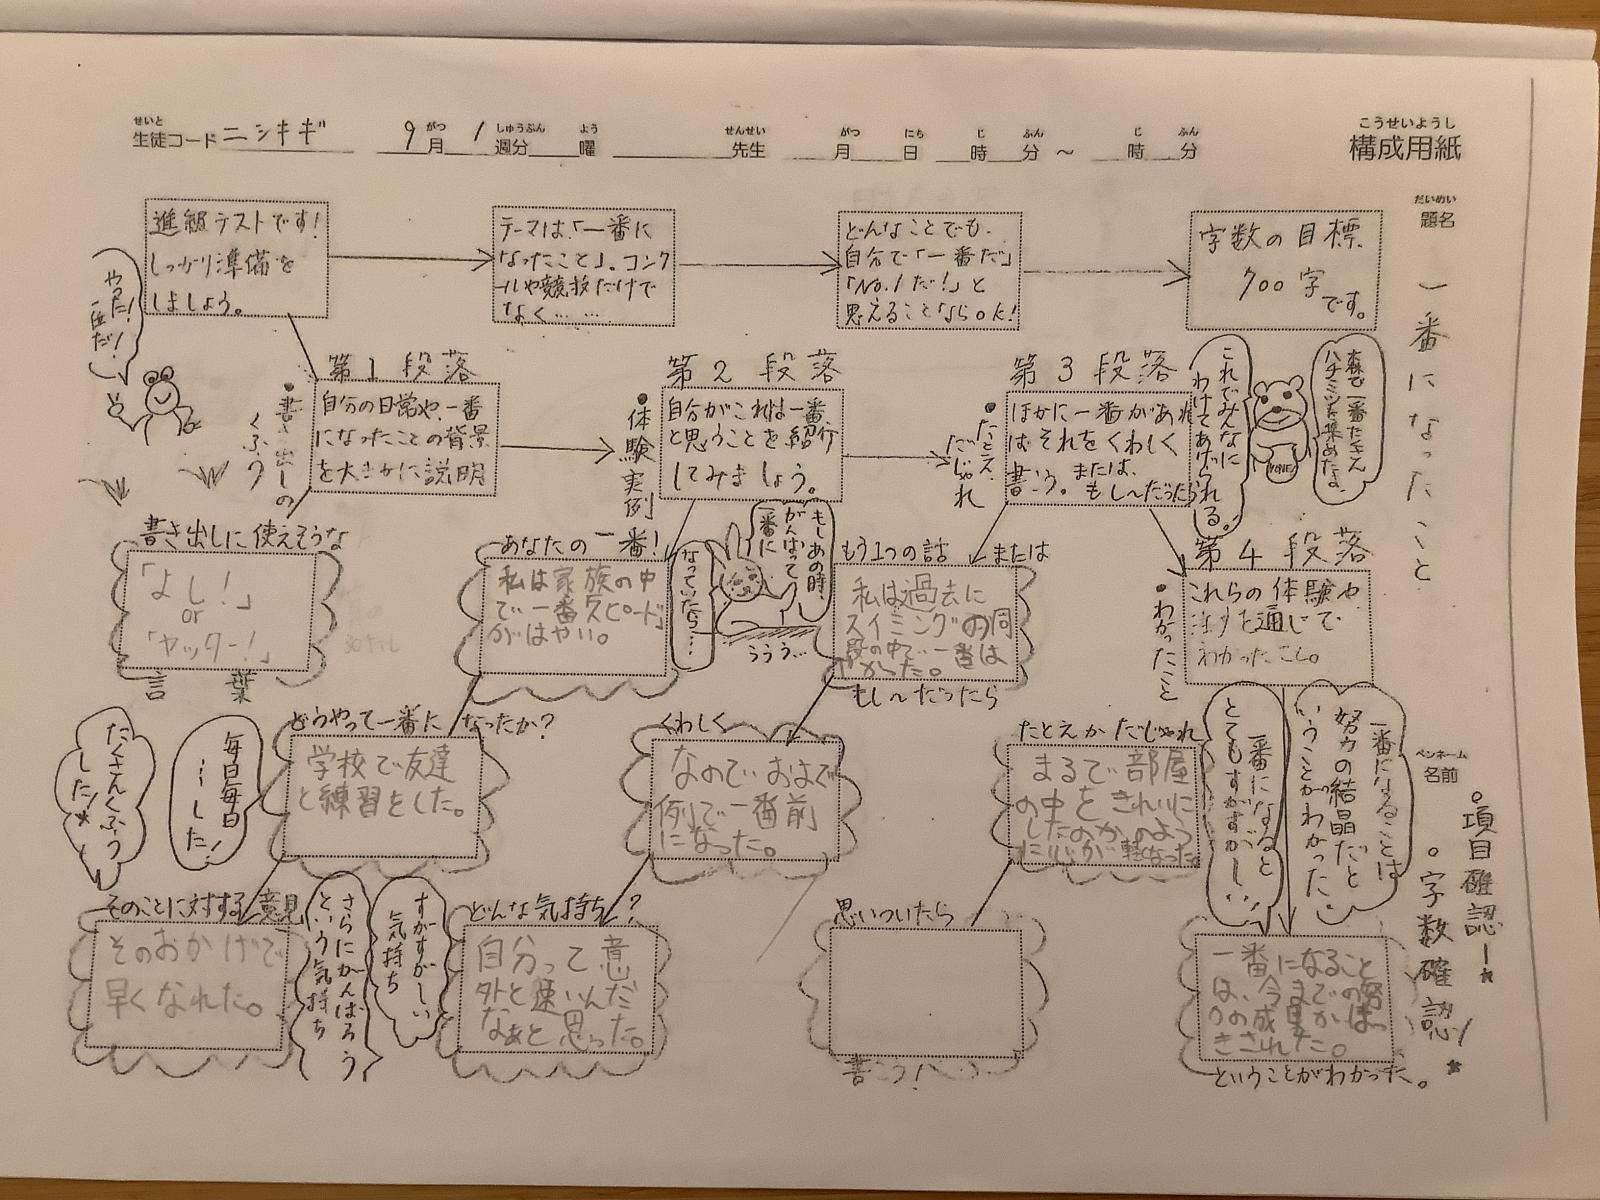 せいと
生徒コード ニシキギ 9月 1週分 曜 先生 月 日 時 分 〜 時 分
がつ しゅうぶん よう せんせい がつ にち じ ふん じ ふん
こうせいようし
構成用紙
だいめい
題名
一番になったこと
ペンネーム
名前
進級テストです!
しっかり準備を
しましょう。
テーマは、「一番に
なったこと」。コンク
ールや競技だけで
なく……
どんなことでも、
自分で「一番だ」
「No.1だ!」と
思えることならOK!
字数の目標
700字
です。
やった!
一匹だ!
第1段落
自分の日常や、一番
になったことの背景
を大まかに説明
•書き出しの
くふう
第2段落
自分がこれは一番
と思うことを紹介
してみましょう。
•体験実例
第3段落
ほかに一番があれ
ばそれをくわしく
書こう。または、
もし〜だったら
•たとえ
だじゃれ
これでみんなに
わけてあげられる。
森で一番たくさん
ハチミツを集めたな。
書き出しに使えそうな
「よし!」
or
「ヤッター!」
言葉
あなたの一番!
私は家族の中
で一番スピード
がはやい。
もしあの時、
がんばって
一番に
なっていたら…
ううう…
もう1つの話
または
私は過去に
スイミングの同
段の中で一番は
やかった。
もし〜だったら
第4段落
これらの体験や
を通じて
わかったこと。
•わかったこと
たくさんくふう
した!
毎日毎日
…した!
どうやって一番になったか?
学校で友達
と練習をした。
くわしく
なのでおよぎで
例で一番前
になった。
たとえかだじゃれ
まるで部屋
の中をきれいに
したのかのよう
に心が軽なった。
一番になると
とてもすがすがしい
一番になることは
努力の結晶だと
いうことがわかった。
•項目確認ー★
•字数確認!★
そのことに対する意見
そのおかげで
早くなれた。
さらにがんばろう
という気持ち
すがすがしい
気持ち
どんな気持ち?
自分って意
外と速いんだ
なぁと思った。
思いついたら
書こう!
一番になること
は、今までの努
力の成果がはっ
きされた。
ということがわかった。